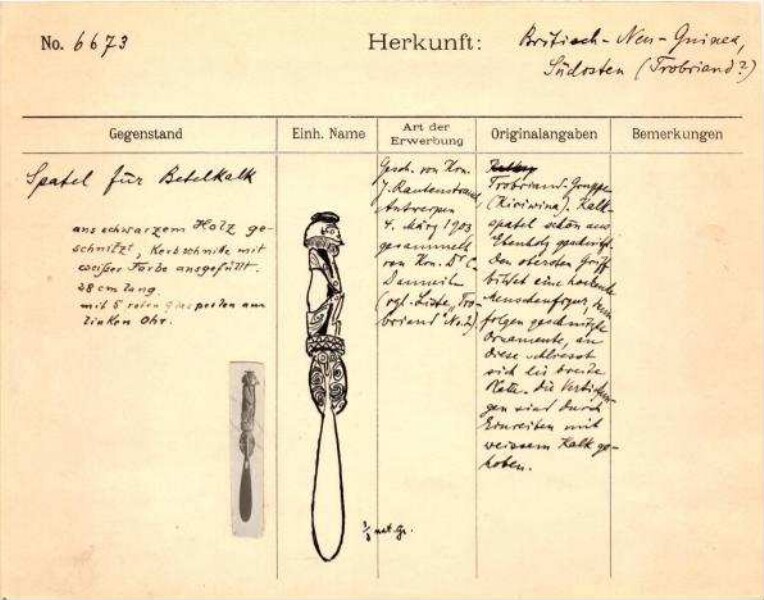 No. 6673
Herkunft:
Britisch-Neu-Guinea,
Südosten (Trobriand?)
Gegenstand
Einh. Name
Art der
Erwerbung
Originalangaben
Bemerkungen
Spatel für Betelkalk
aus schwarzem Holz ge-
schnitzt, Kerbschnitte mit
weißer Farbe ausgefüllt.
28 cm lang.
mit 5 roten Glasperlen am
linken Ohr.
Gesch. von Hrn.
J. Rautenstrauch,
Antwerpen
4. März 1903
gesammelt
von Hrn. Dr.
(vgl. Liste „Tro-
briand" No. 2).
Trobriand-Gruppe
(Kiriwina). Kalk-
spatel schön aus
Ebenholz geschnitzt.
Den obersten Griff
bildet eine hockende
Menschenfigur, dann
folgen geschnitzte
Ornamente, an
diese schliesst
sich die breite
Die Vertiefun-
gen sind durch
Einreiben mit
weissem Kalk ge-
hoben.
1/3 nat. Gr.